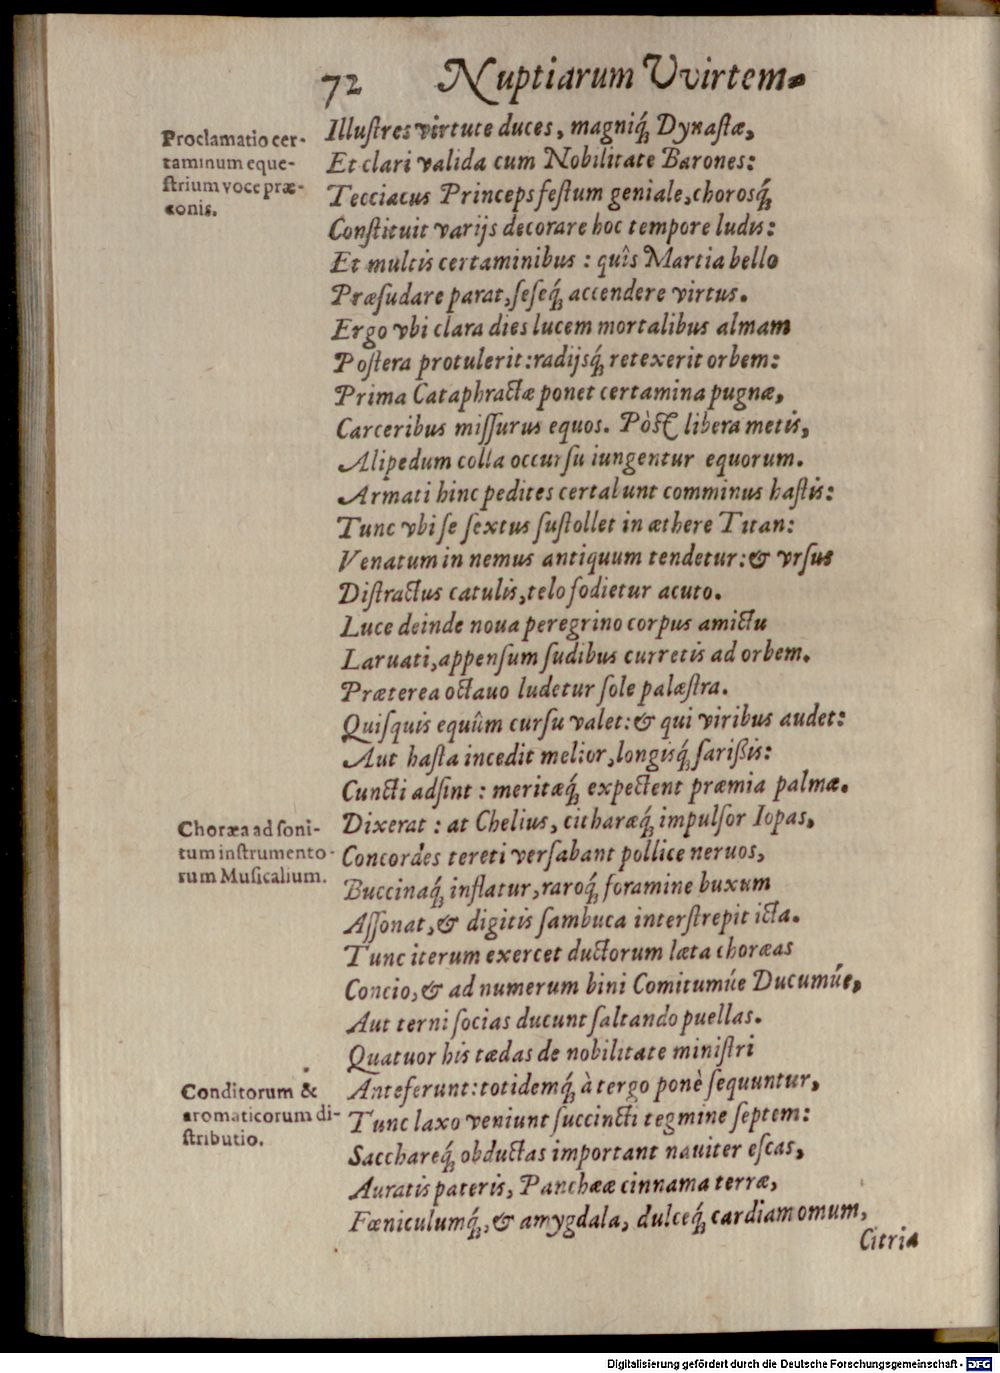 72 Nuptiarum Vvirtem-
Proclamatio cer-
taminum eque-
ſtrium voce præ-
conis.
Illuſtres virtute duces, magniq́; Dynaſtæ,
Et clari valida cum Nobilitate Barones:
Tecciacus Princeps feſtum geniale, chorosq́;
Conſtituit varijs decorare hoc tempore ludis:
Et multis certaminibus: quîs Martia bello
Præſudare parat, ſeſeq́; accendere virtus.
Ergo vbi clara dies lucem mortalibus almam
Poſtera protulerit: radijsq́; retexerit orbem:
Prima Cataphractæ ponet certamina pugnæ,
Carceribus miſſurus equos. Pòſt libera metis,
Alipedum colla occurſu iungentur equorum.
Armati hinc pedites certabunt comminus haſtis:
Tunc vbi ſe ſextus ſuſtollet in æthere Titan:
Venatum in nemus antiquum tendetur: & vrſus
Diſtractus catulis, telo fodietur acuto.
Luce deinde noua peregrino corpus amictu
Laruati, appenſum ſudibus curretis ad orbem.
Præterea octauo ludetur ſole palæſtra.
Quiſquis equûm curſu valet: & qui viribus audet:
Aut haſta incedit melior, longisq́; ſarißis:
Cuncti adſint: meritæq́; expectent præmia palmæ.
Choræa ad ſoni-
tum inſtrumento-
rum Muſicalium.
Dixerat: at Chelius, citharæq́; impulſor Iopas,
Concordes tereti verſabant pollice neruos,
Buccinaq́; inflatur, raroq́; foramine buxum
Aſſonat, & digitis ſambuca interſtrepit icta.
Tunc iterum exercet ductorum læta choræas
Concio, & ad numerum bini Comitumúe Ducumúe,
Aut terni ſocias ducunt ſaltando puellas.
Quatuor his tædas de nobilitate miniſtri
Conditorum &
aromaticorum di-
ſtributio.
Anteferunt: totidemq́; à tergo ponè ſequuntur,
Tunc laxo veniunt ſuccincti tegmine ſeptem:
Sacchareq́; obductas important nauiter eſcas,
Auratis pateris, Panchææ cinnama terræ,
Fœniculumq́;, & amygdala, dulceq́; cardiamomum,
Citria
Digitalisierung gefördert durch die Deutsche Forschungsgemeinschaft - DFG